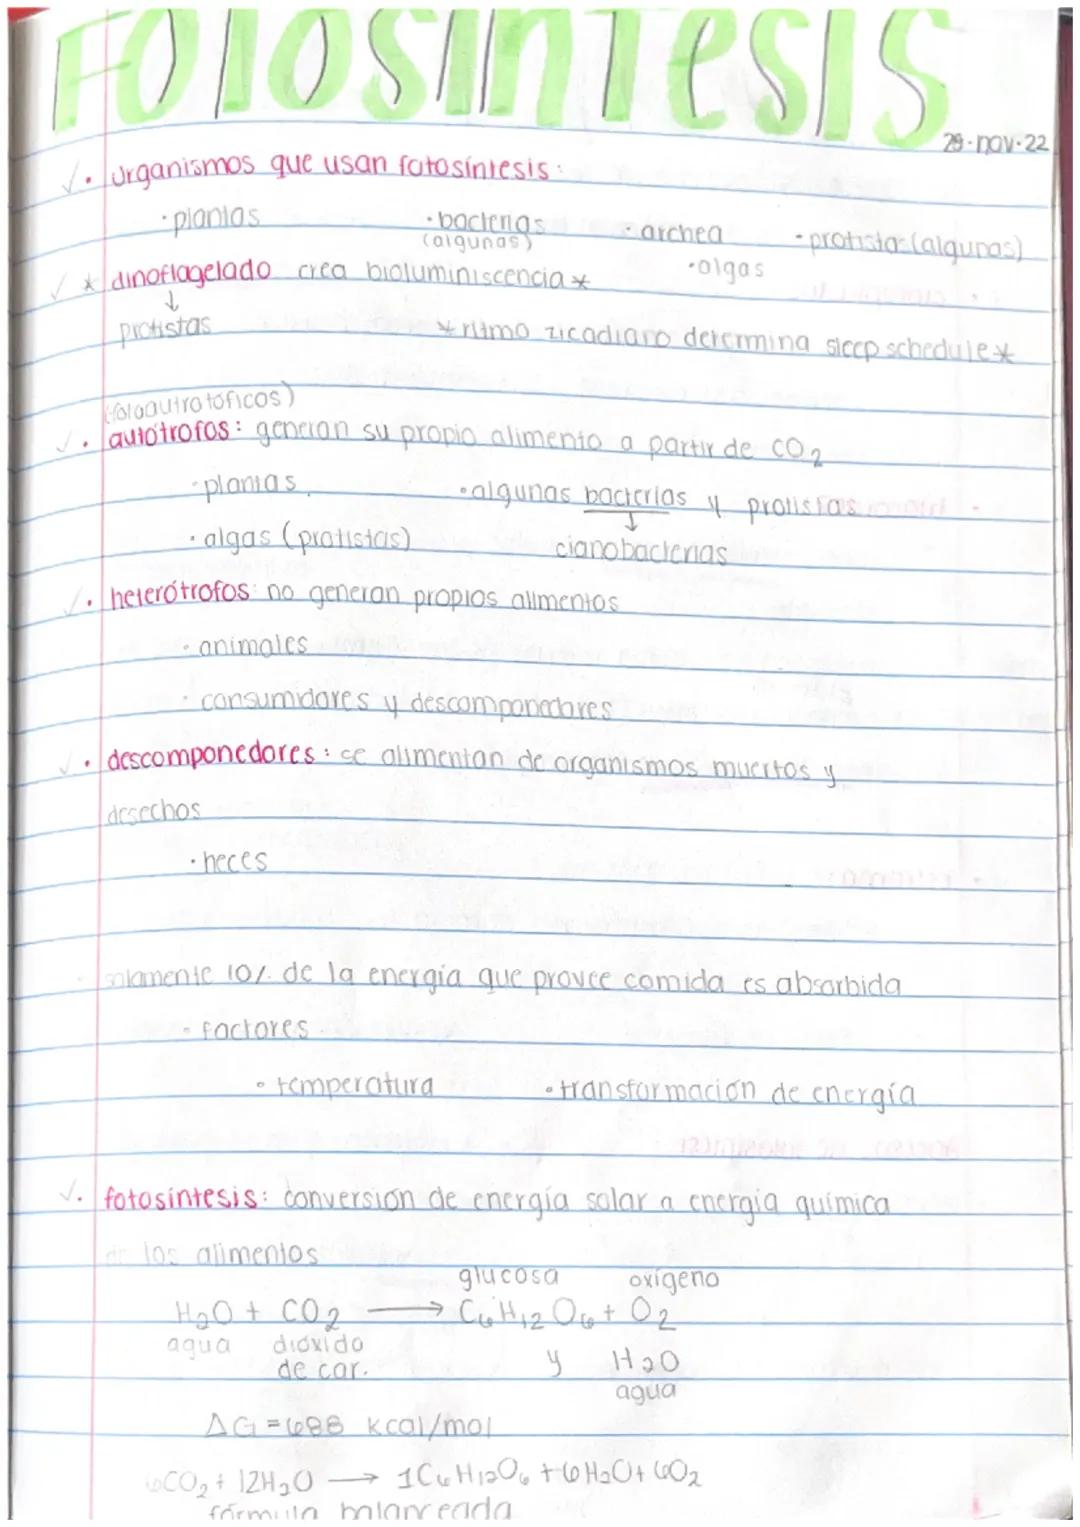 FOTOSÍNTESIS
29·nov·22
✓· Organismos que usan fotosíntesis:
·plantas ·bacterias (algunas) ·archea ·protista (algunas)
·algas
✓ * dinoflagelado crea bioluminiscencia *
↓
protistas
* ritmo zicadiano determina sleep schedule *
(fotoautrotóficos)
✓· autótrofos: generan su propio alimento a partir de CO₂
·plantas ·algunas bacterias y protistas
↓
·algas (protistas) cianobacterias
✓· heterótrofos: no generan propios alimentos
·animales
·consumidores y descomponedores
✓· descomponedores: se alimentan de organismos muertos y
desechos
·heces
· solamente 10% de la energía que provee comida es absorbida
·factores
·temperatura ·transformación de energía
✓· fotosíntesis: conversión de energía solar a energía química
de los alimentos
glucosa oxígeno
H₂O + CO₂ → C₆H₁₂O₆ + O₂
agua dióxido y H₂O
de car. agua
ΔG = 688 kcal/mol
6CO₂ + 12H₂O → 1C₆H₁₂O₆ + 6H₂O + 6O₂
fórmula balanceada